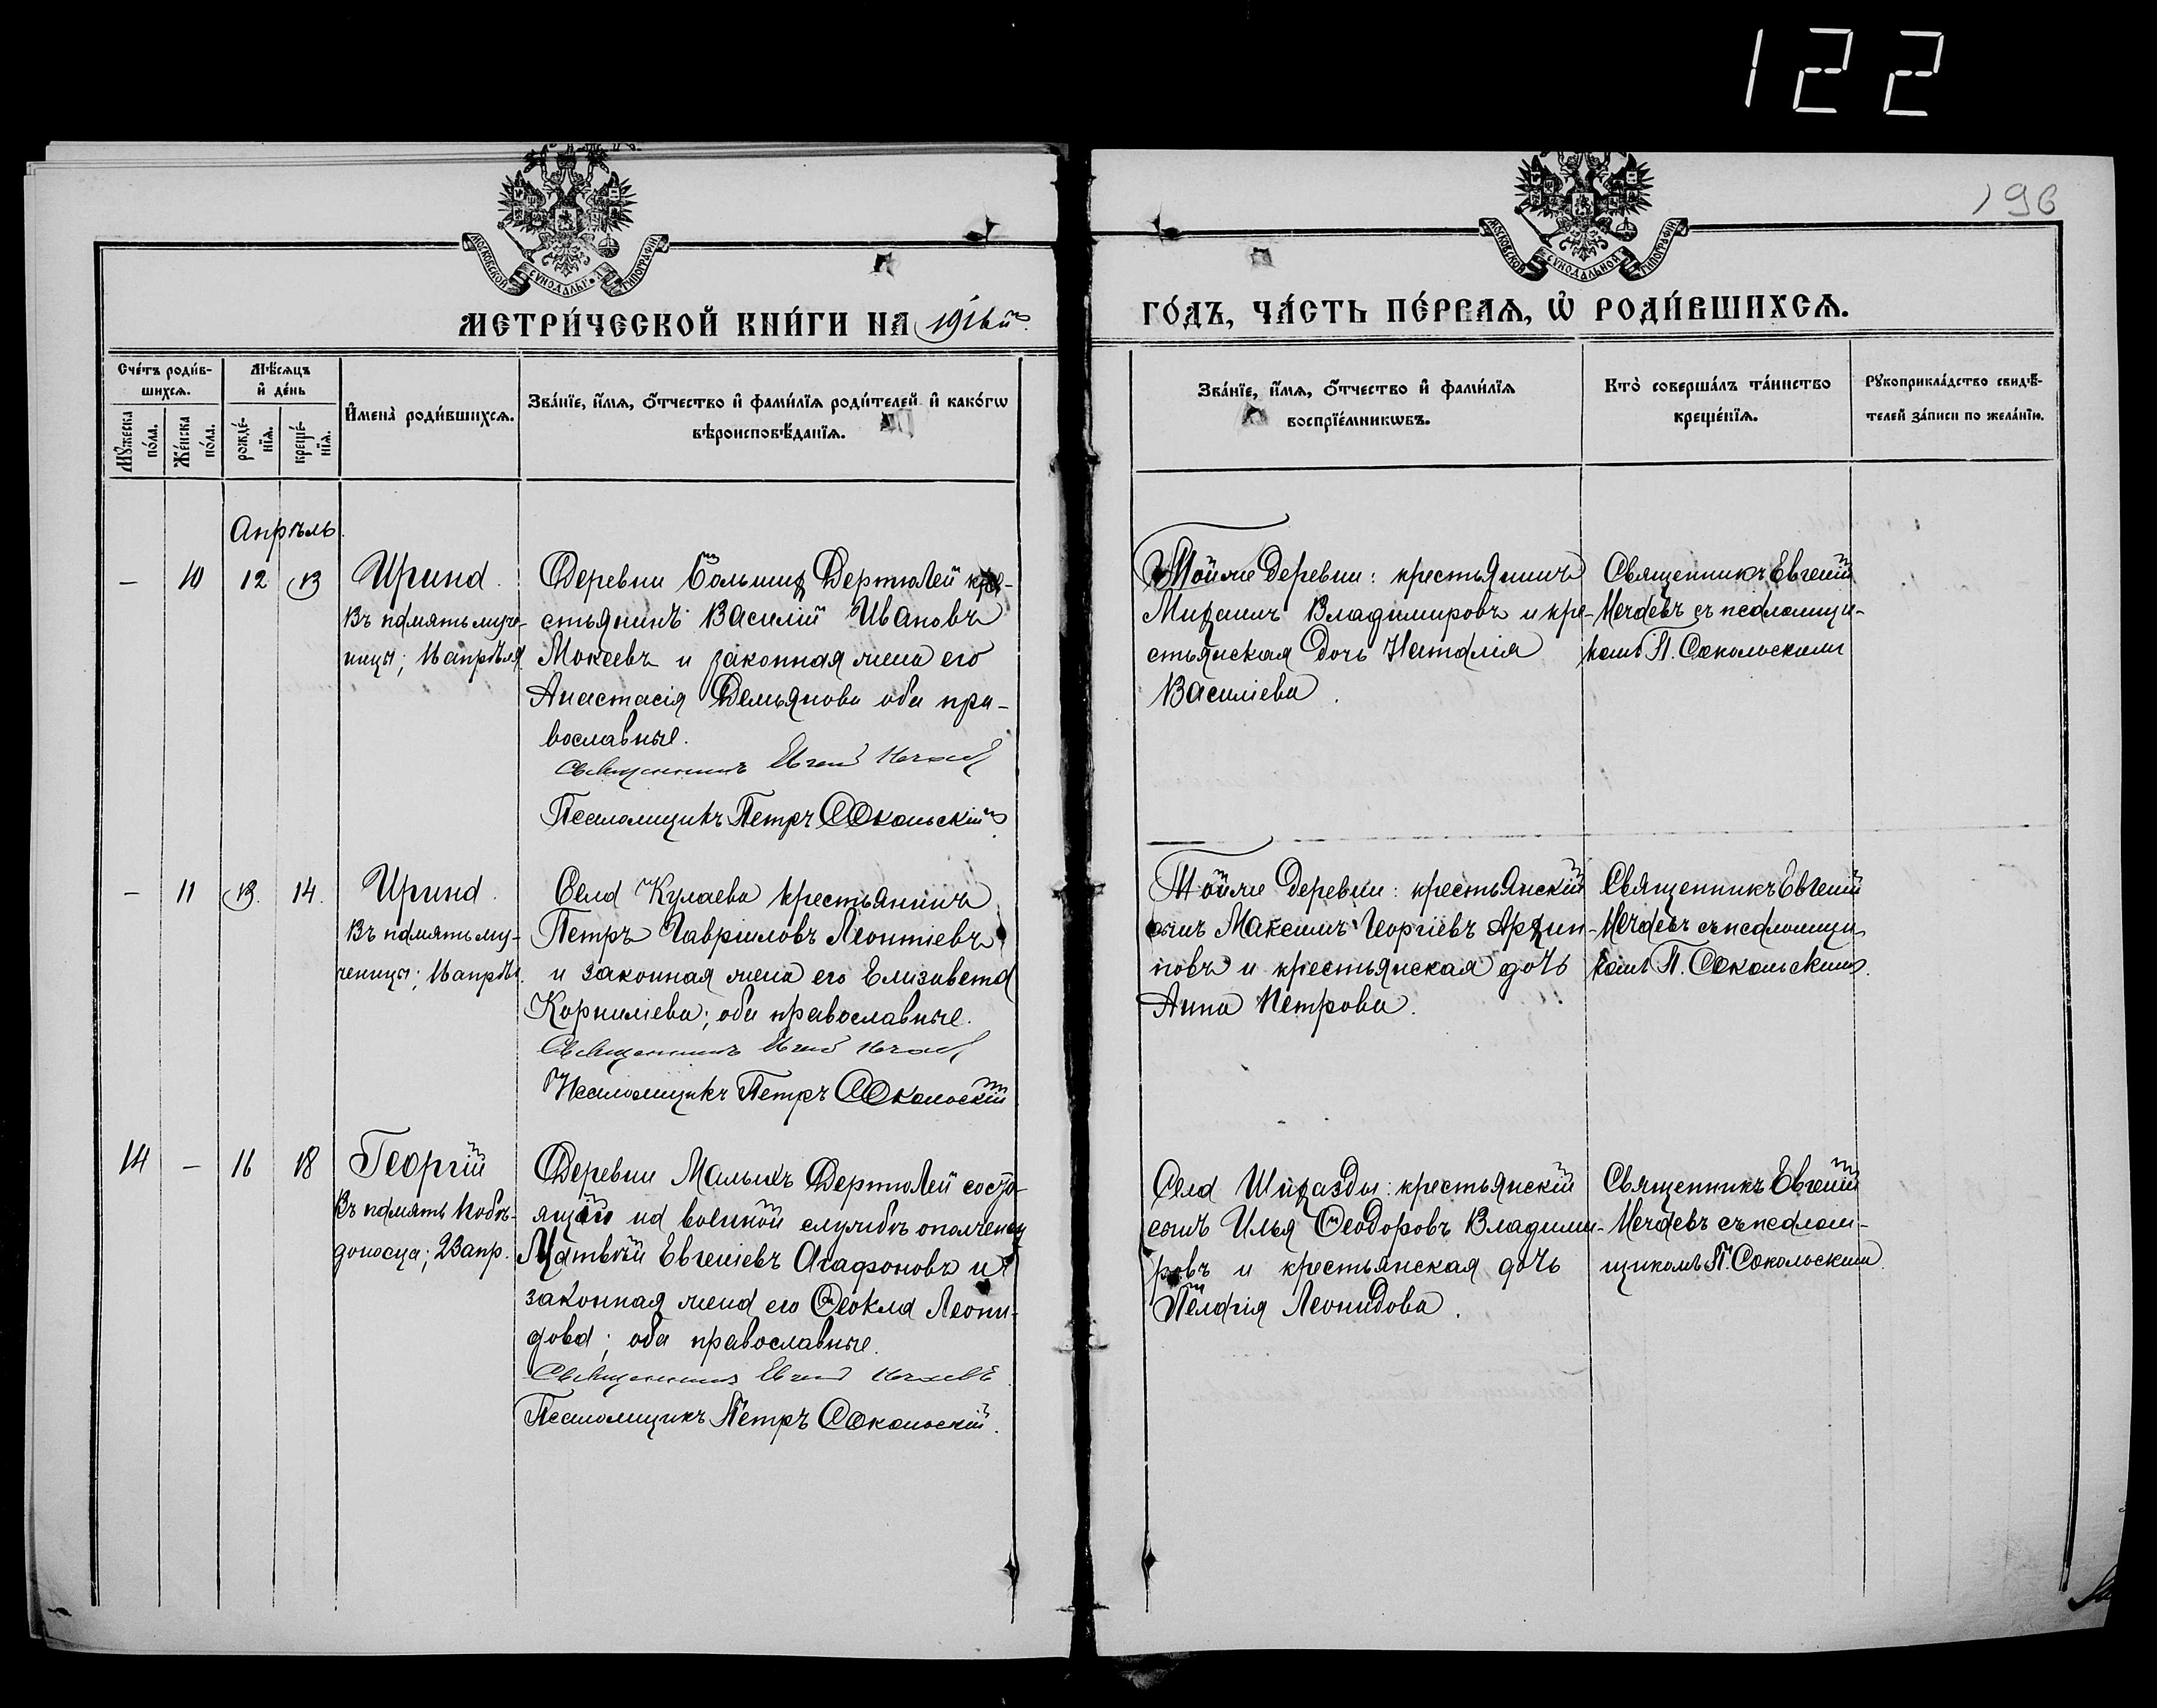 122
196
МОСКОВСКОЙ СѴНОДАЛЬНОЙ ТИПОГРАФІИ
МОСКОВСКОЙ СѴНОДАЛЬНОЙ ТИПОГРАФІИ
МЕТРИ́ЧЕСКОЙ КНИ́ГИ НА 1916й
ГО́ДЪ, ЧА́СТЬ ПЕ́РВАѦ, Ѡ҆ РОДИ́ВШИХСѦ.
Сче́тъ роди́в-
шихсѧ.
Мѣ́сѧцъ
и҆ де́нь
Мꙋ́жеска
по́ла.
Же́нска
по́ла.
рожде́-
нїѧ.
креще́-
нїѧ.
И҆мена̀ роди́вшихсѧ.
Зва́нїе, и҆́мѧ, ѻ҆́тчество и҆ фами́лїѧ роди́телей и҆ како́гѡ
вѣроисповѣ́данїѧ.
Зва́нїе, и҆́мѧ, ѻ҆́тчество и҆ фами́лїѧ
воспрїе́мникѡвъ.
Кто̀ соверша́лъ та́инство
креще́нїѧ.
Рꙋкоприкла́дство свидѣ́-
телей за́писи по жела́нїю.
Апрѣль
— 10 12 13 Ирина.
Въ память муче-
ницы; 16 апрѣля
Деревни Большихъ Дертюлей кре-
стьянинъ Василій Ивановъ
Мокеевъ и законная жена его
Анастасія Демьянова оба пра-
вославные.
Священникъ Евгеній Мечаевъ
Псаломщикъ Петръ Сокольскій
Той же деревни: крестьянинъ
Михаилъ Владимировъ и кре-
стьянская дочь Наталія
Василіева.
Священникъ Евгеній
Мечаевъ съ псаломщи-
комъ П. Сокольскимъ
— 11 13. 14. Ирина.
Въ память му-
ченицы; 16 апрѣл.
Села Кулаева крестьянинъ
Петръ Гавріиловъ Леонтіевъ
и законная жена его Елизавета
Корниліева; оба православные.
Священникъ Евгеній Мечаевъ
Псаломщикъ Петръ Сокольскій
Той же деревни: крестьянскій
сынъ Максимъ Георгіевъ Архип-
повъ и крестьянская дочь
Анна Петрова.
Священникъ Евгеній
Мечаевъ съ псаломщи-
комъ П. Сокольскимъ.
14 — 16 18 Георгій
Въ память Побѣ-
доносца; 23 апр.
Деревни Малыхъ Дертюлей состо-
ящій на военной службѣ ополченец
Матвѣй Евгеніевъ Агафоновъ и
законная жена его Ѳеокла Леони-
дова; оба православные.
Священникъ Евгеній Мечаевъ
Псаломщикъ Петръ Сокольскій.
Села Шигазды: крестьянскій
сынъ Илья Ѳеодоровъ Владими-
ровъ и крестьянская дочь
Пелагія Леонидова.
Священникъ Евгеній
Мечаевъ съ псалом-
щикомъ П. Сокольским.